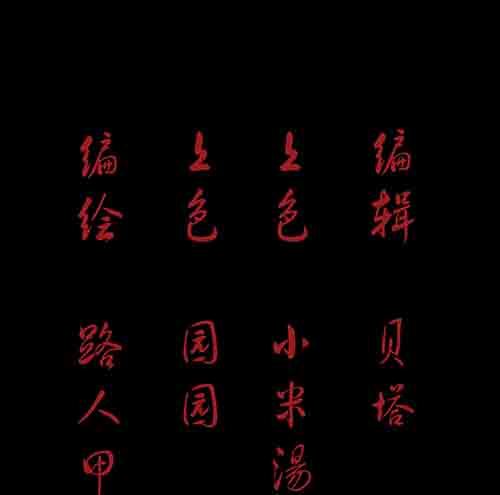 编绘 路人甲
上色 园园
上色 小米湯
编辑 贝塔